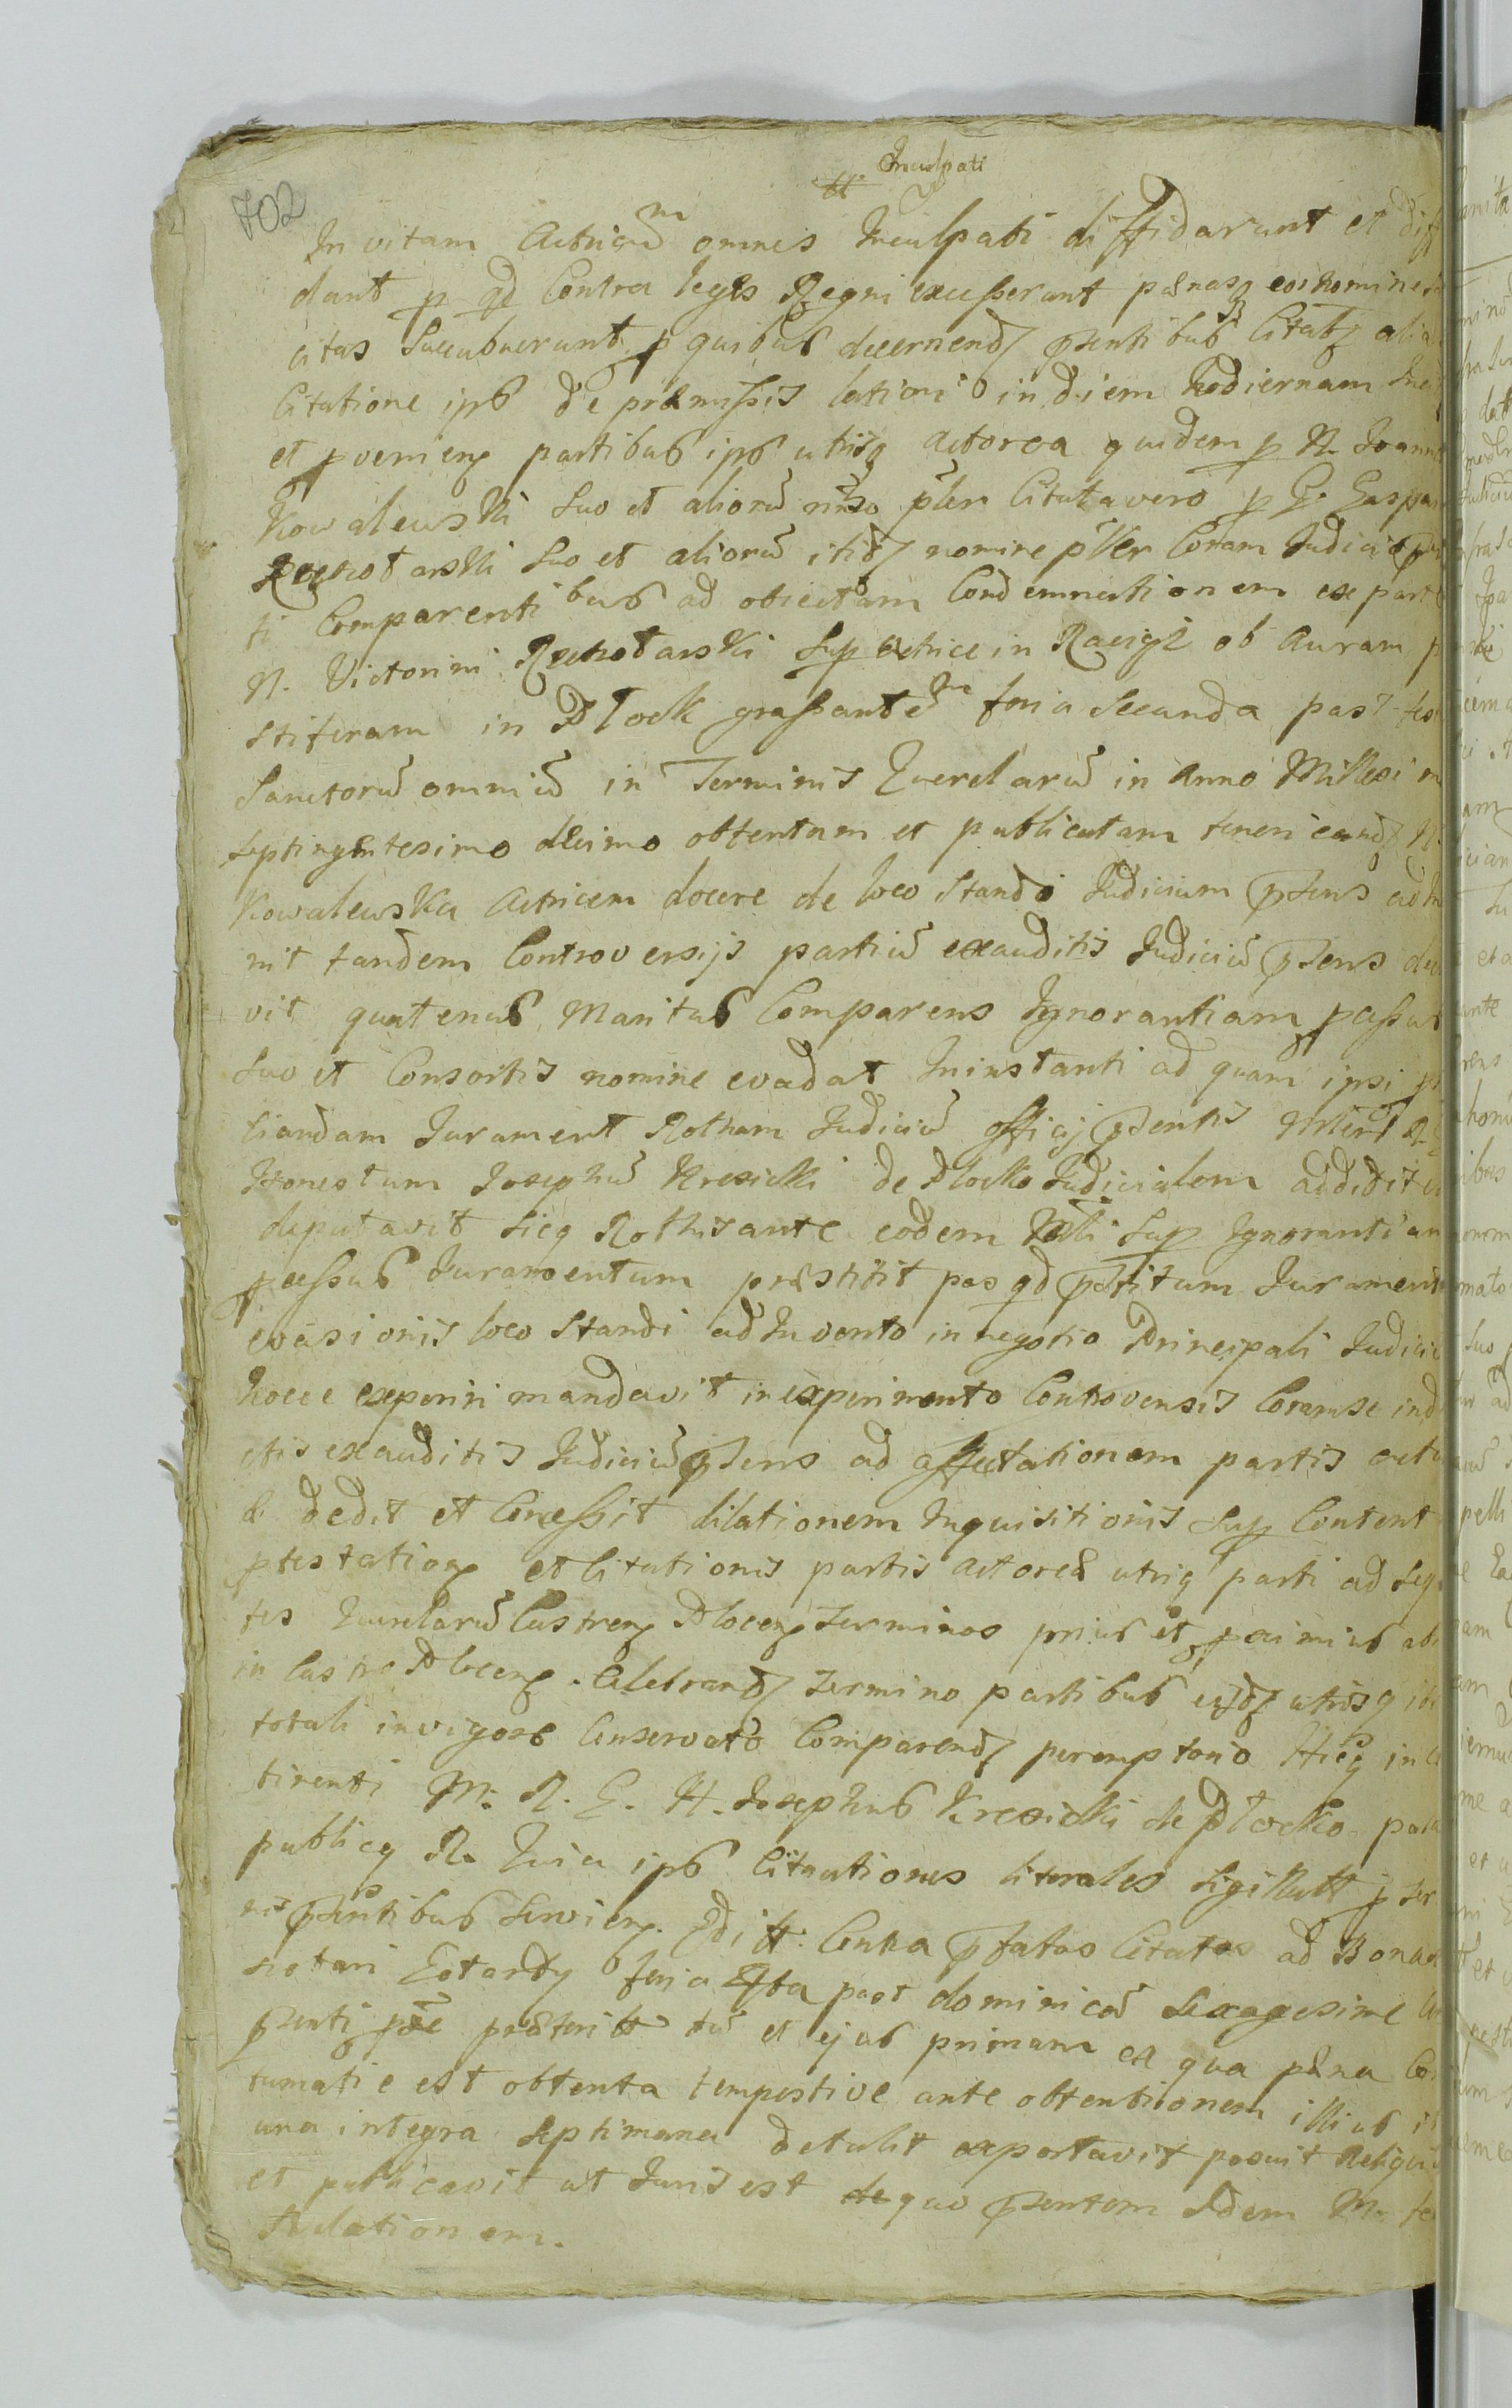 702
tt. Inculpati
In vitam Actricem omnes Inculpati diffidarunt et diff
dant p qd Contra leges Regni excesserunt pænasq eos nomine
citas Succubuerunt p quibus decernend psentibus Citati alia
Citatione ips de præmissis latiori in diem hodiernam
et pvenien partibus ips utrisq Actorea quidem p N. Joann
Kowalewski suo et aliorū nno pler Citata vero p G. Gaspar
suo et aliorū itid nomine pller Coram Judicio
ti Comparentibus ad obiectam Condemnationem ex part
N. Victorini Sup Actrice in Raciąż ob Auram p
stiferam in Płock grassantem feria Secunda post fes
Sanctorū omniū in Terminis Querelarū in Anno Millesim
septingentesimo decimo obtentam et publicatam teneri eand N.
Kowalewska Actricem docere de loco Standi Judicium psens adIn
nit tandem Controversijs partiū exauditis Judiciū psens dec
vit quatenus Maritus Comparens Ignorantiam pcessus
Suo et Consortis nomine evadat Ininstanti ad quam ipsi p
tiandam Jurament Rotham Judiciū officij psentis
Honestum Josephū Kresicki de Płocko Judicialem addidit
deputavit sicq Rothis ante eodem Sup Ignorantiam
pcessus Juramentum præstitit pos qd pstitum Jurament
evasionis loco Standi adInvento in negotio Principali Judici
hocce experiri mandavit in experimento Controversis Coram se ind
ctis exauditis Judiciū psens ad affectationem partis act
dedit et Concessit dilationem Inquisitionis Sup Content
ptestation et Citationis partis Actoreæ utriq parti ad seq
tes Querelarū Castren Plocen Terminos prius et pximius
in Castro Plocen. Celebrand Termino partibus eisd utrisq
totali in vigore Conservato Comparend peremptorio Hicq in
tinenti M. R. G. H. Josephus Kresicki de Płocko pala
publicq R. Quia ips Citationes literales sigillatt p ter
nis psentibus Servien. Editt. Contra pfatos Citatos ad Bona
feria 5ta post dominicā Sexagesime
psenti præteritt tū et ejus primam ex qua pæna Con
tumatie est obtenta tempestive ante obtentionem illius
una integra Septimana detulit exportavit posuit Reliqui
et publicavit ut Juris est de quo psentem Idem M. fe
Relationem.